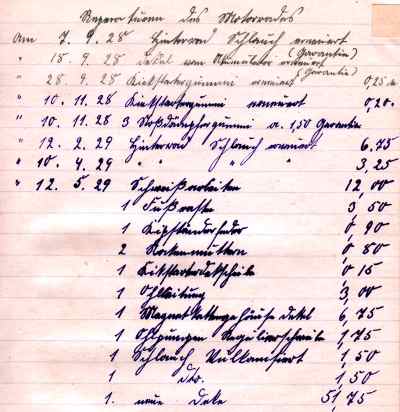 Reparaturen des Motorrades
Am 7. 9. 28 Hinterrad Schlauch erneuert
" 15. 9. 28 Dekel vom Akumulator erneuert (Garantie)
" 28. 9. 28 Kickstartergummi erneuert (Garantie) 0,25
" 10. 11. 28 Kickstartergummi erneuert 0,20
" 10. 11. 28 3 Stoßdämpfergummi a. 1,50 Garantie
" 12. 2. 29 Hinterrad Schlauch erneuert 6,75
" 10. 4. 29 " " " " 3,25
" 12. 5. 29 Schweißarbeiten 12,00
1 Fußraste 3,50
1 Kipständerfeder 0,90
2 Rockenmuttern 0,80
1 Kikstarterdekscheibe 0,15
1 Ohlleitung 3,00
1 Magnet Kettengehäuse Dekel 6,75
1 Ohlpumpen Regulierscheibe 1,75
1 Schlauch Vulkanisiert 1,50
1 dto. 1,50
1. neue Deke 51,75